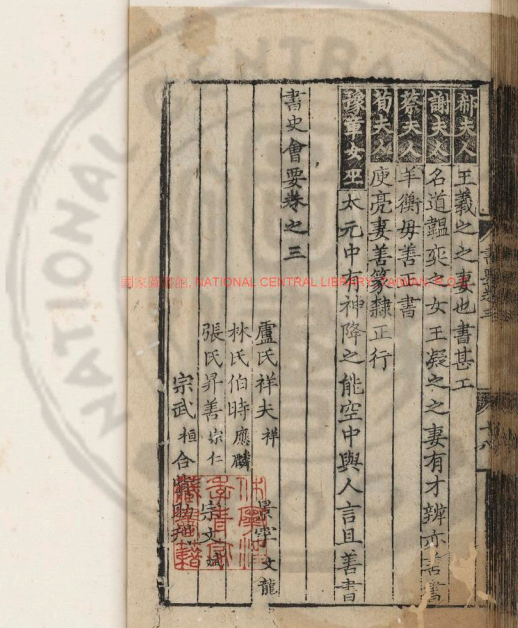 郗夫人 王羲之之妻也書甚工
謝夫人 名道韞奕之女王凝之之妻有才辨亦善書
蔡夫人 羊衡母善正書
荀夫人 庾亮妻善篆隸正行
豫章女巫 太元中有神降之能空中與人言且善書
書史會要卷之三
盧氏祥夫祥 景寧文龍
林氏伯時應麟
張氏昇善宗仁 宗文斌
宗武桓合 助
國家圖書館, NATIONAL CENTRAL LIBRARY, TAIWAN, R.O.C
NATIONAL CENTRAL